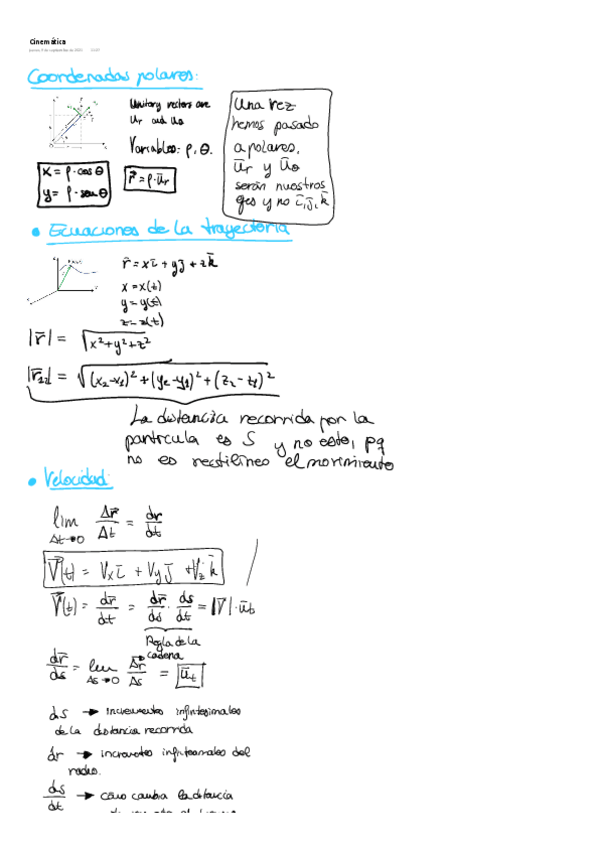 Cinemática
Coordenadas polares:
Unitary vectors are
ur and uθ
Variables: ρ, θ.
x = ρ·cosθ
y = ρ·senθ
r̄ = ρ·ūr
Una vez
hemos pasado
a polares,
ūr y ūθ
serán nuestros
ejes y no ī, j̄, k̄
• Ecuaciones de la trayectoria
r̄ = xī + yj̄ + zk̄
x = x(t)
y = y(t)
z = z(t)
|r̄| = √x²+y²+z²
|r̄12| = √(x2-x1)² + (y2-y1)² + (z2-z1)²
La distancia recorrida por la
partícula es S y no esto, pq
no es rectilíneo el movimiento
• Velocidad:
lim Δt→0 Δr̄/Δt = dr/dt
V̄(t) = Vx ī + Vy j̄ + Vz k̄
V̄(t) = dr̄/dt = dr̄/ds · ds/dt = |V̄|·ūt
Regla de la
cadena
dr̄/ds = lim Δs→0 Δr̄/Δs = ūt
ds → incrementos infinitesimales
de la distancia recorrida
dr → incrementos infinitesimales del
radio.
ds/dt → cómo cambia la distancia